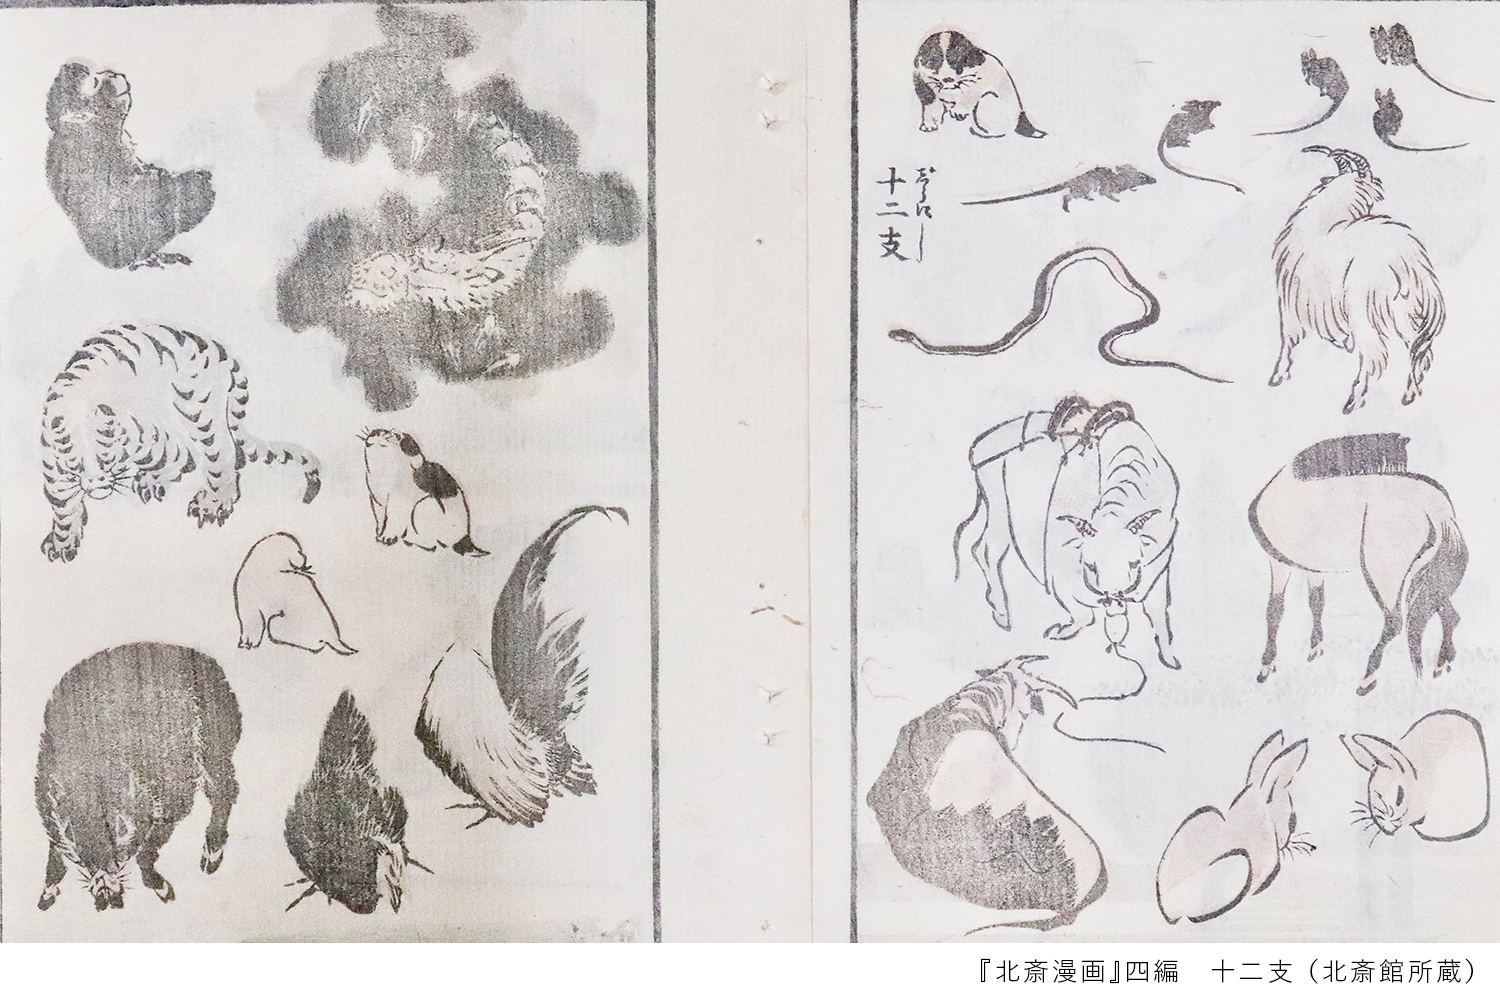 十二支
じうにし
『北斎漫画』四編　十二支（北斎館所蔵）